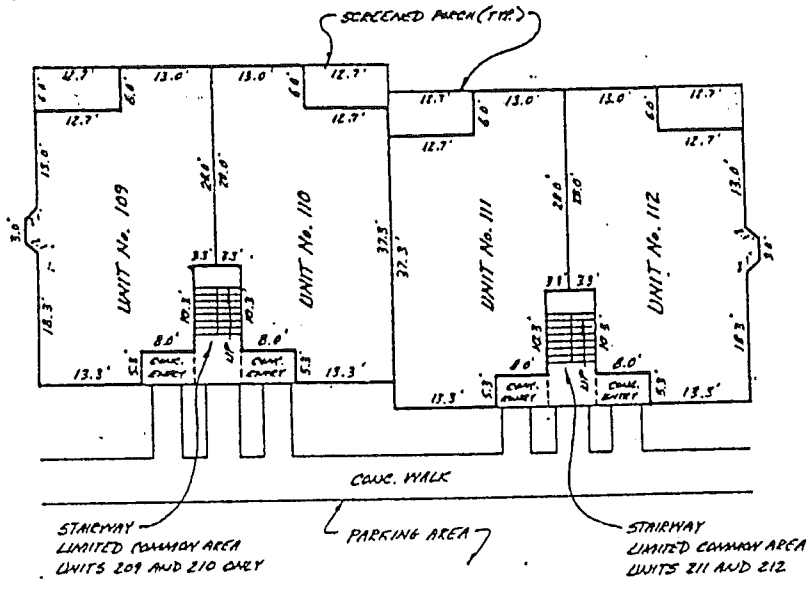 SCREENED PORCH (TYP.)
12.7' 13.0' 13.0' 12.7'
6.0' 6.0' 6.0'
12.7' 12.7'
12.7' 13.0' 13.0' 12.7'
6.0' 6.0'
12.7' 12.7'
13.0' 28.0' 28.0' 28.0' 13.0'
UNIT No. 109
UNIT No. 110
UNIT No. 111
UNIT No. 112
3.0' 37.3' 37.3' 3.0'
3.3' 3.3'
3.3' 3.3'
18.3' 10.3' 10.3' 10.3' 10.3' 18.3'
8.0' UP 8.0'
8.0' UP 8.0'
13.3' 5.3' CONC. ENTRY CONC. ENTRY 5.3' 13.3'
13.3' 5.3' CONC. ENTRY CONC. ENTRY 5.3' 13.3'
CONC. WALK
PARKING AREA
STAIRWAY
LIMITED COMMON AREA
UNITS 209 AND 210 ONLY
STAIRWAY
LIMITED COMMON AREA
UNITS 211 AND 212